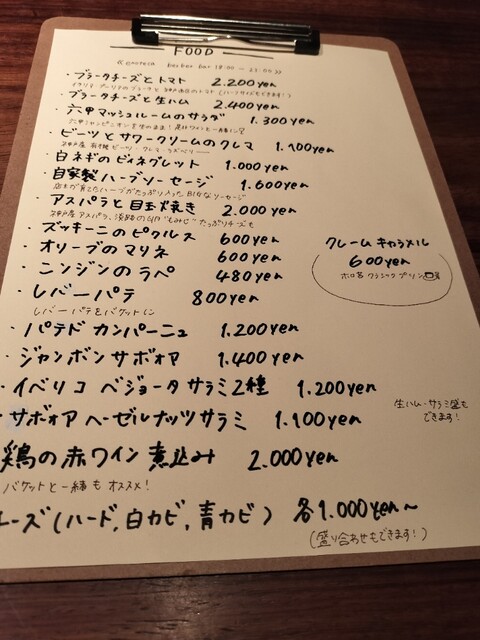 FOOD
18:00 - 23:00
・ブラータチーズとトマト 2.200yen
・ブラータチーズと生ハム 2.400yen
・六甲マッシュルームのサラダ 1.300yen
・ビーツとサワークリームのクレマ 1.100yen
・白ネギのビィネグレット 1.000yen
・自家製ハーブソーセージ 1.600yen
・アスパラと目玉焼き 2.000yen
・ズッキーニのピクルス 600yen
・オリーブのマリネ 600yen
・ニンジンのラペ 480yen
クレームキャラメル
600yen
ホロ苦クラシックプリン
・レバーパテ 800yen
レバーパテをバゲットに
・パテドカンパーニュ 1.200yen
・ジャンボンサボォア 1.400yen
・イベリコ ベジョータサラミ2種 1.200yen
・サボォアヘーゼルナッツサラミ 1.100yen
生ハム・サラミ盛も
できます!
鶏の赤ワイン煮込み 2.000yen
バゲットと一緒もオススメ!
ーズ(ハード,白カビ,青カビ) 各1.000yen〜
(盛り合わせもできます!)